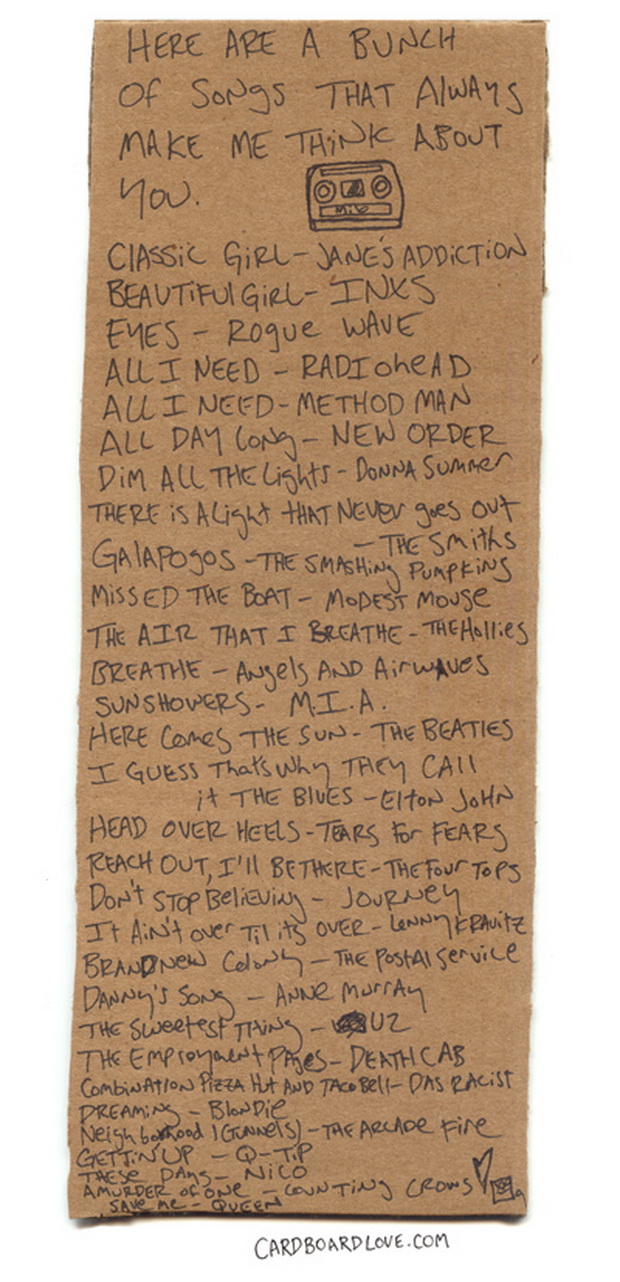 HERE ARE A BUNCH
OF SONGS THAT ALWAYS
MAKE ME THINK ABOUT
YOU.
MIX
CLASSIC GIRL - JANE'S ADDICTION
BEAUTIFUL GIRL - INXS
EYES - ROGUE WAVE
ALL I NEED - RADIOHEAD
ALL I NEED - METHOD MAN
ALL DAY LONG - NEW ORDER
DIM ALL THE LIGHTS - DONNA SUMMER
THERE IS A LIGHT THAT NEVER GOES OUT
- THE SMITHS
GALAPOGOS - THE SMASHING PUMPKINS
MISSED THE BOAT - MODEST MOUSE
THE AIR THAT I BREATHE - THE HOLLIES
BREATHE - ANGELS AND AIRWAVES
SUNSHOWERS - M.I.A.
HERE COMES THE SUN - THE BEATLES
I GUESS THATS WHY THEY CALL
IT THE BLUES - ELTON JOHN
HEAD OVER HEELS - TEARS FOR FEARS
REACH OUT, I'LL BE THERE - THE FOUR TOPS
DON'T STOP BELIEVING - JOURNEY
IT AIN'T OVER TIL ITS OVER - LENNY KRAVITZ
BRAND NEW COLONY - THE POSTAL SERVICE
DANNY'S SONG - ANNE MURRAY
THE SWEETEST THING - U2
THE EMPLOYMENT PAGES - DEATH CAB
COMBINATION PIZZA HUT AND TACO BELL - DAS RACIST
DREAMING - BLONDIE
NEIGHBORHOOD 1 (TUNNELS) - THE ARCADE FIRE
GETTIN' UP - Q-TIP
THESE DAYS - NICO
A MURDER OF ONE - COUNTING CROWS
SAVE ME - QUEEN
CARDBOARDLOVE.COM